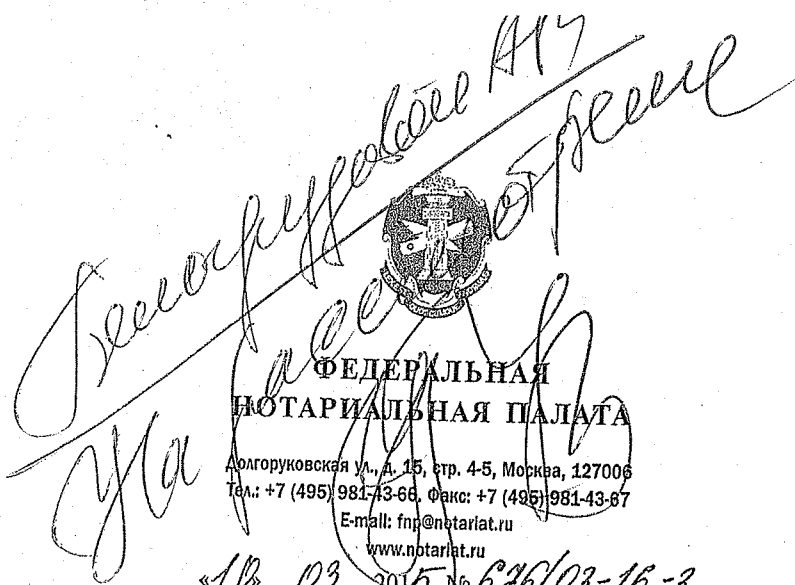 На рассмотрение
ФЕДЕРАЛЬНАЯ
НОТАРИАЛЬНАЯ ПАЛАТА
Долгоруковская ул., д. 15, стр. 4-5, Москва, 127006
Тел.: +7 (495) 981-43-66, Факс: +7 (495) 981-43-67
E-mail: fnp@notariat.ru
www.notariat.ru
03 2015 № 676/03-16-3